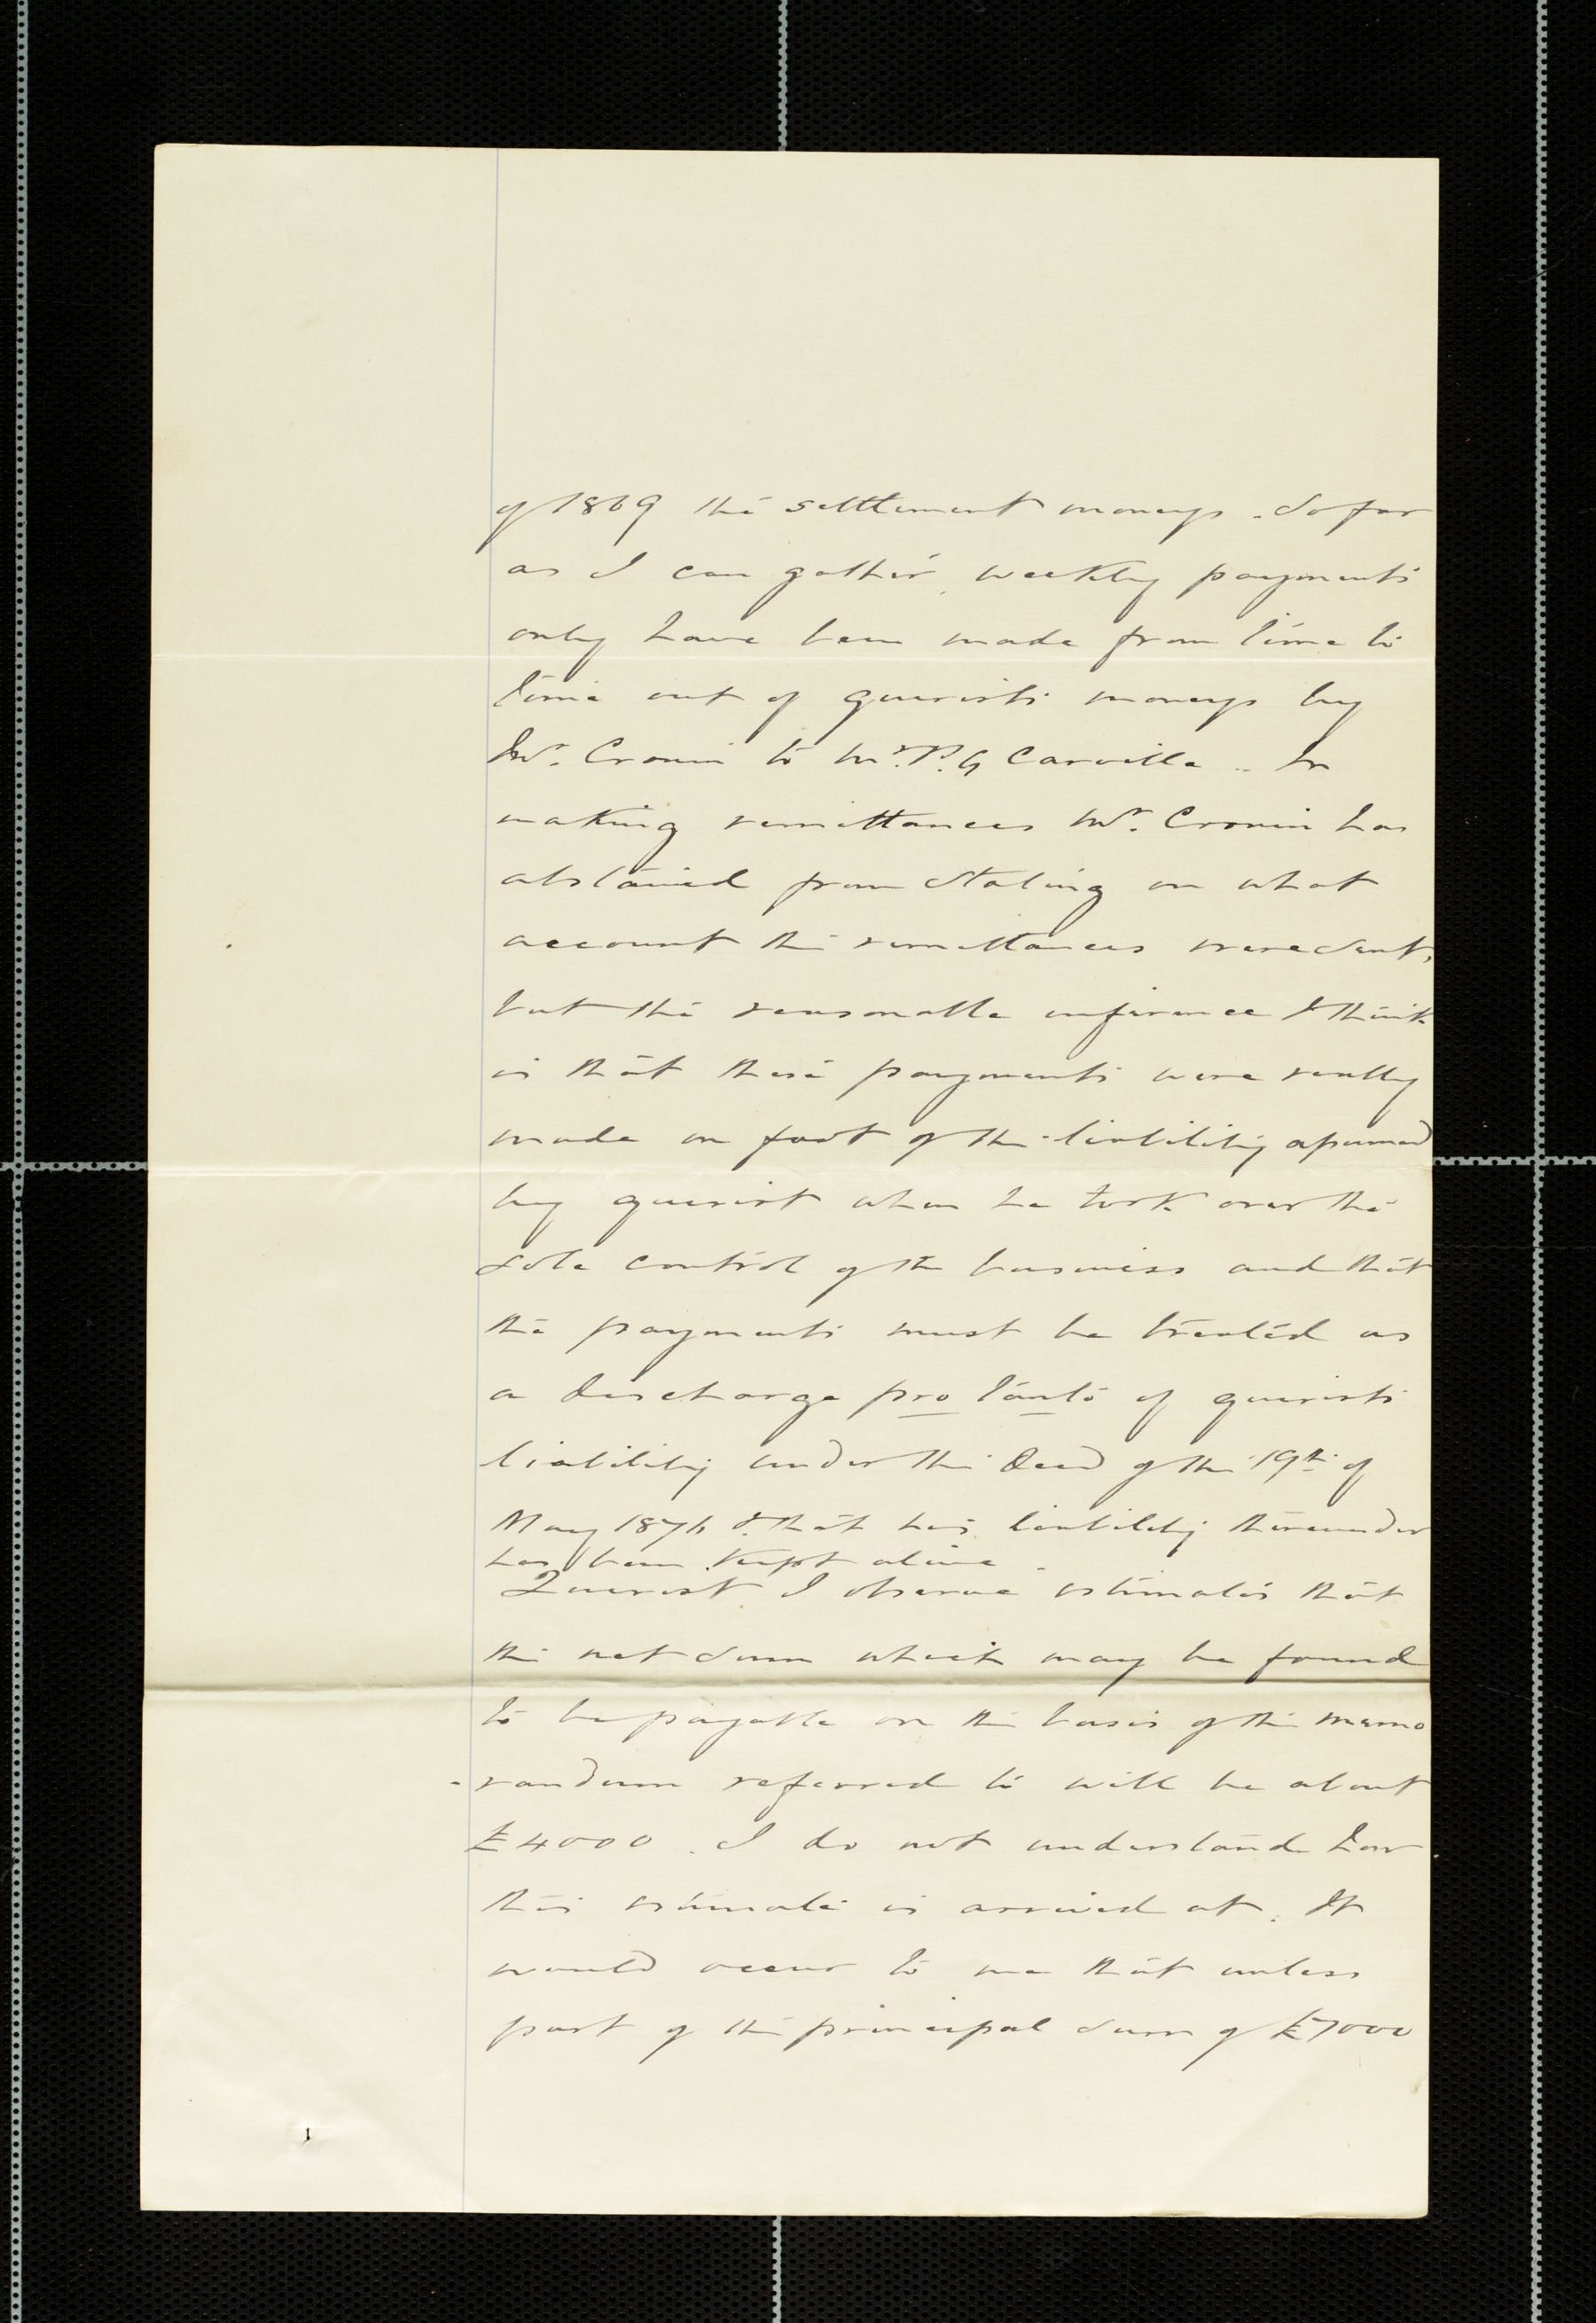 of 1869 the settlement moneys. So far
as I can gather, weekly payments
only have been made from time to
time out of querists moneys by
Mr. Cronin to Mr. P. G Carville. In
making remittances Mr. Cronin has
abstained from stating on what
account the remittances were sent,
but the reasonable inference I think
is that these payments were really
made on foot of the liability assumed
by querist when he took over the
sole control of the business and that
the payments must be treated as
a discharge pro tanto of querists
liability under the Deed of the 19th of
May 1876 & that his liability thereunder
has been kept alive.
Querist I observe estimates that
the net sum which may be found
to be payable on the basis of the memo
-randum referred to will be about
£4000. I do not understand how
this estimate is arrived at. It
would occur to me that unless
part of the principal sum of £7000